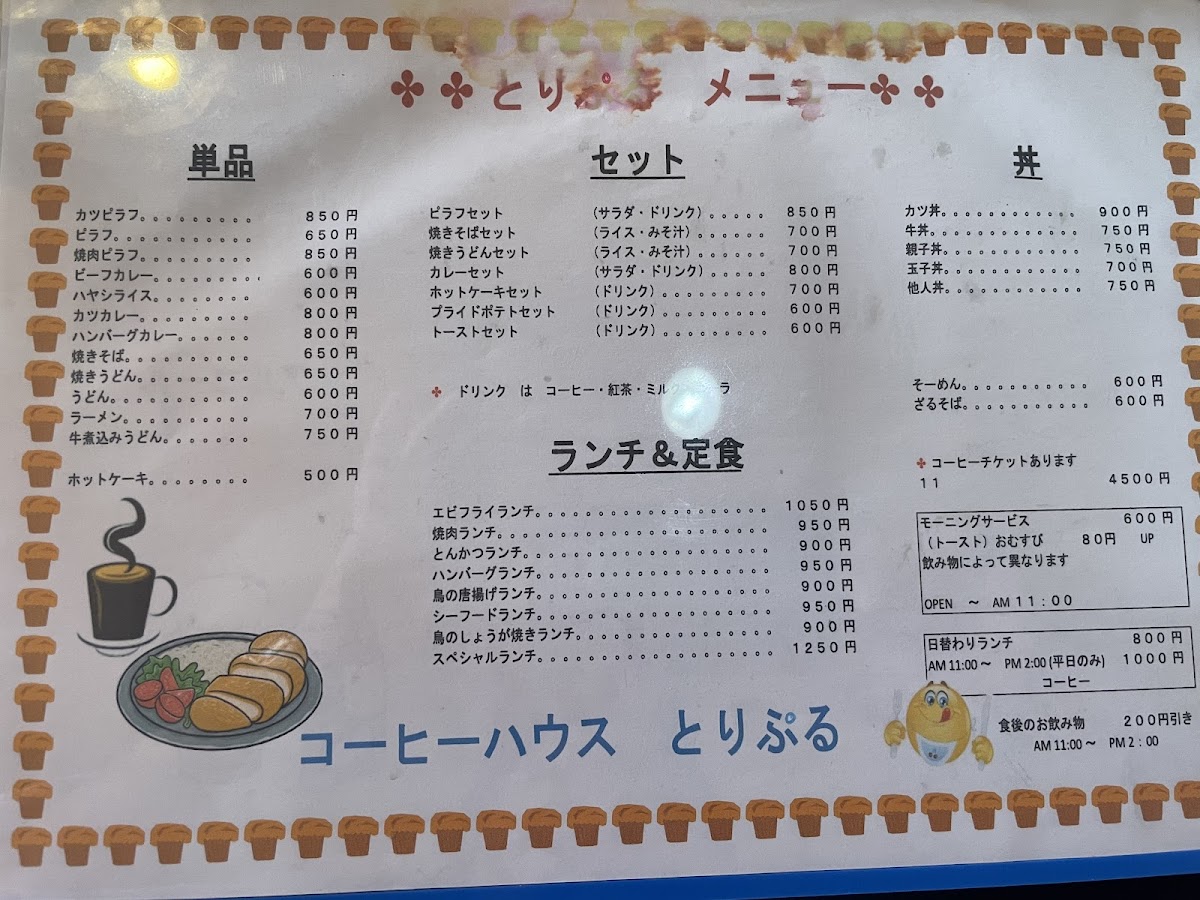 とりぷる メニュー
単品
カツピラフ。。。。。。。。。 850円
ピラフ。。。。。。。。。。。 650円
焼肉ピラフ。。。。。。。。。 850円
ビーフカレー。。。。。。。。 600円
ハヤシライス。。。。。。。。 600円
カツカレー。。。。。。。。。 800円
ハンバーグカレー。。。。。。 800円
焼きそば。。。。。。。。。。 650円
焼きうどん。。。。。。。。。 650円
うどん。。。。。。。。。。。 600円
ラーメン。。。。。。。。。。 700円
牛煮込みうどん。。。。。。。 750円
ホットケーキ。。。。。。。。 500円
セット
ピラフセット (サラダ・ドリンク)。。。。。 850円
焼きそばセット (ライス・みそ汁)。。。。。。 700円
焼きうどんセット (ライス・みそ汁)。。。。。。 700円
カレーセット (サラダ・ドリンク)。。。。。 800円
ホットケーキセット (ドリンク)。。。。。。。。。 700円
プライドポテトセット (ドリンク)。。。。。。。。。 600円
トーストセット (ドリンク)。。。。。。。。。 600円
ドリンク は コーヒー・紅茶・ミル
ランチ&定食
エビフライランチ。。。。。。。。。。。。。。。。。。 1050円
焼肉ランチ。。。。。。。。。。。。。。。。。。。。 950円
とんかつランチ。。。。。。。。。。。。。。。。。。 900円
ハンバーグランチ。。。。。。。。。。。。。。。。。 950円
鳥の唐揚げランチ。。。。。。。。。。。。。。。。。 900円
シーフードランチ。。。。。。。。。。。。。。。。。 950円
鳥のしょうが焼きランチ。。。。。。。。。。。。。。 900円
スペシャルランチ。。。。。。。。。。。。。。。。。 1250円
丼
カツ丼。。。。。。。。。。。。 900円
牛丼。。。。。。。。。。。。。 750円
親子丼。。。。。。。。。。。。 750円
玉子丼。。。。。。。。。。。。 700円
他人丼。。。。。。。。。。。。 750円
そーめん。。。。。。。。。。。 600円
ざるそば。。。。。。。。。。。 600円
コーヒーチケットあります
11 4500円
モーニングサービス 600円
(トースト) おむすび 80円 UP
飲み物によって異なります
OPEN ～ AM 11:00
日替わりランチ 800円
AM 11:00～ PM 2:00 (平日のみ) 1000円
コーヒー
食後のお飲み物 200円引き
AM 11:00～ PM 2:00
コーヒーハウス とりぷる